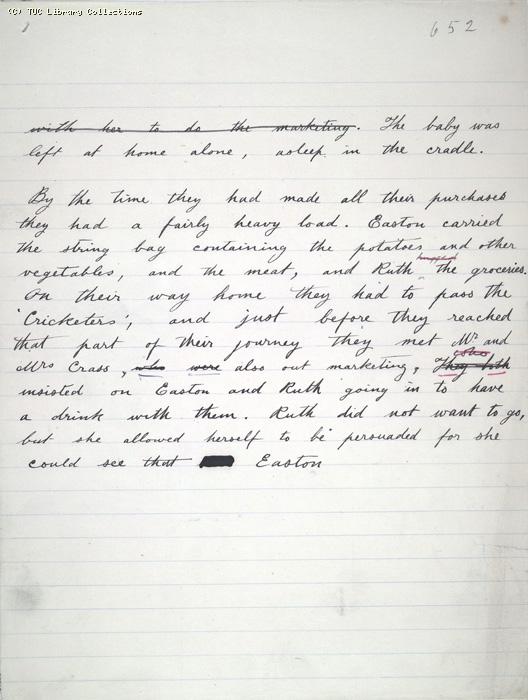 (C) TUC Library Collections
652
with her to do the marketing. The baby was
left at home alone, asleep in the cradle.
By the time they had made all their purchases
they had a fairly heavy load. Easton carried
the string bag containing the potatoes and other
vegetables, and the meat, and Ruth the groceries.
On their way home they had to pass the
'Cricketers', and just before they reached
that part of their journey they met Mr and
who
Mrs Crass, who were also out marketing, They both
insisted on Easton and Ruth going in to have
a drink with them. Ruth did not want to go,
but she allowed herself to be persuaded for she
could see that Easton